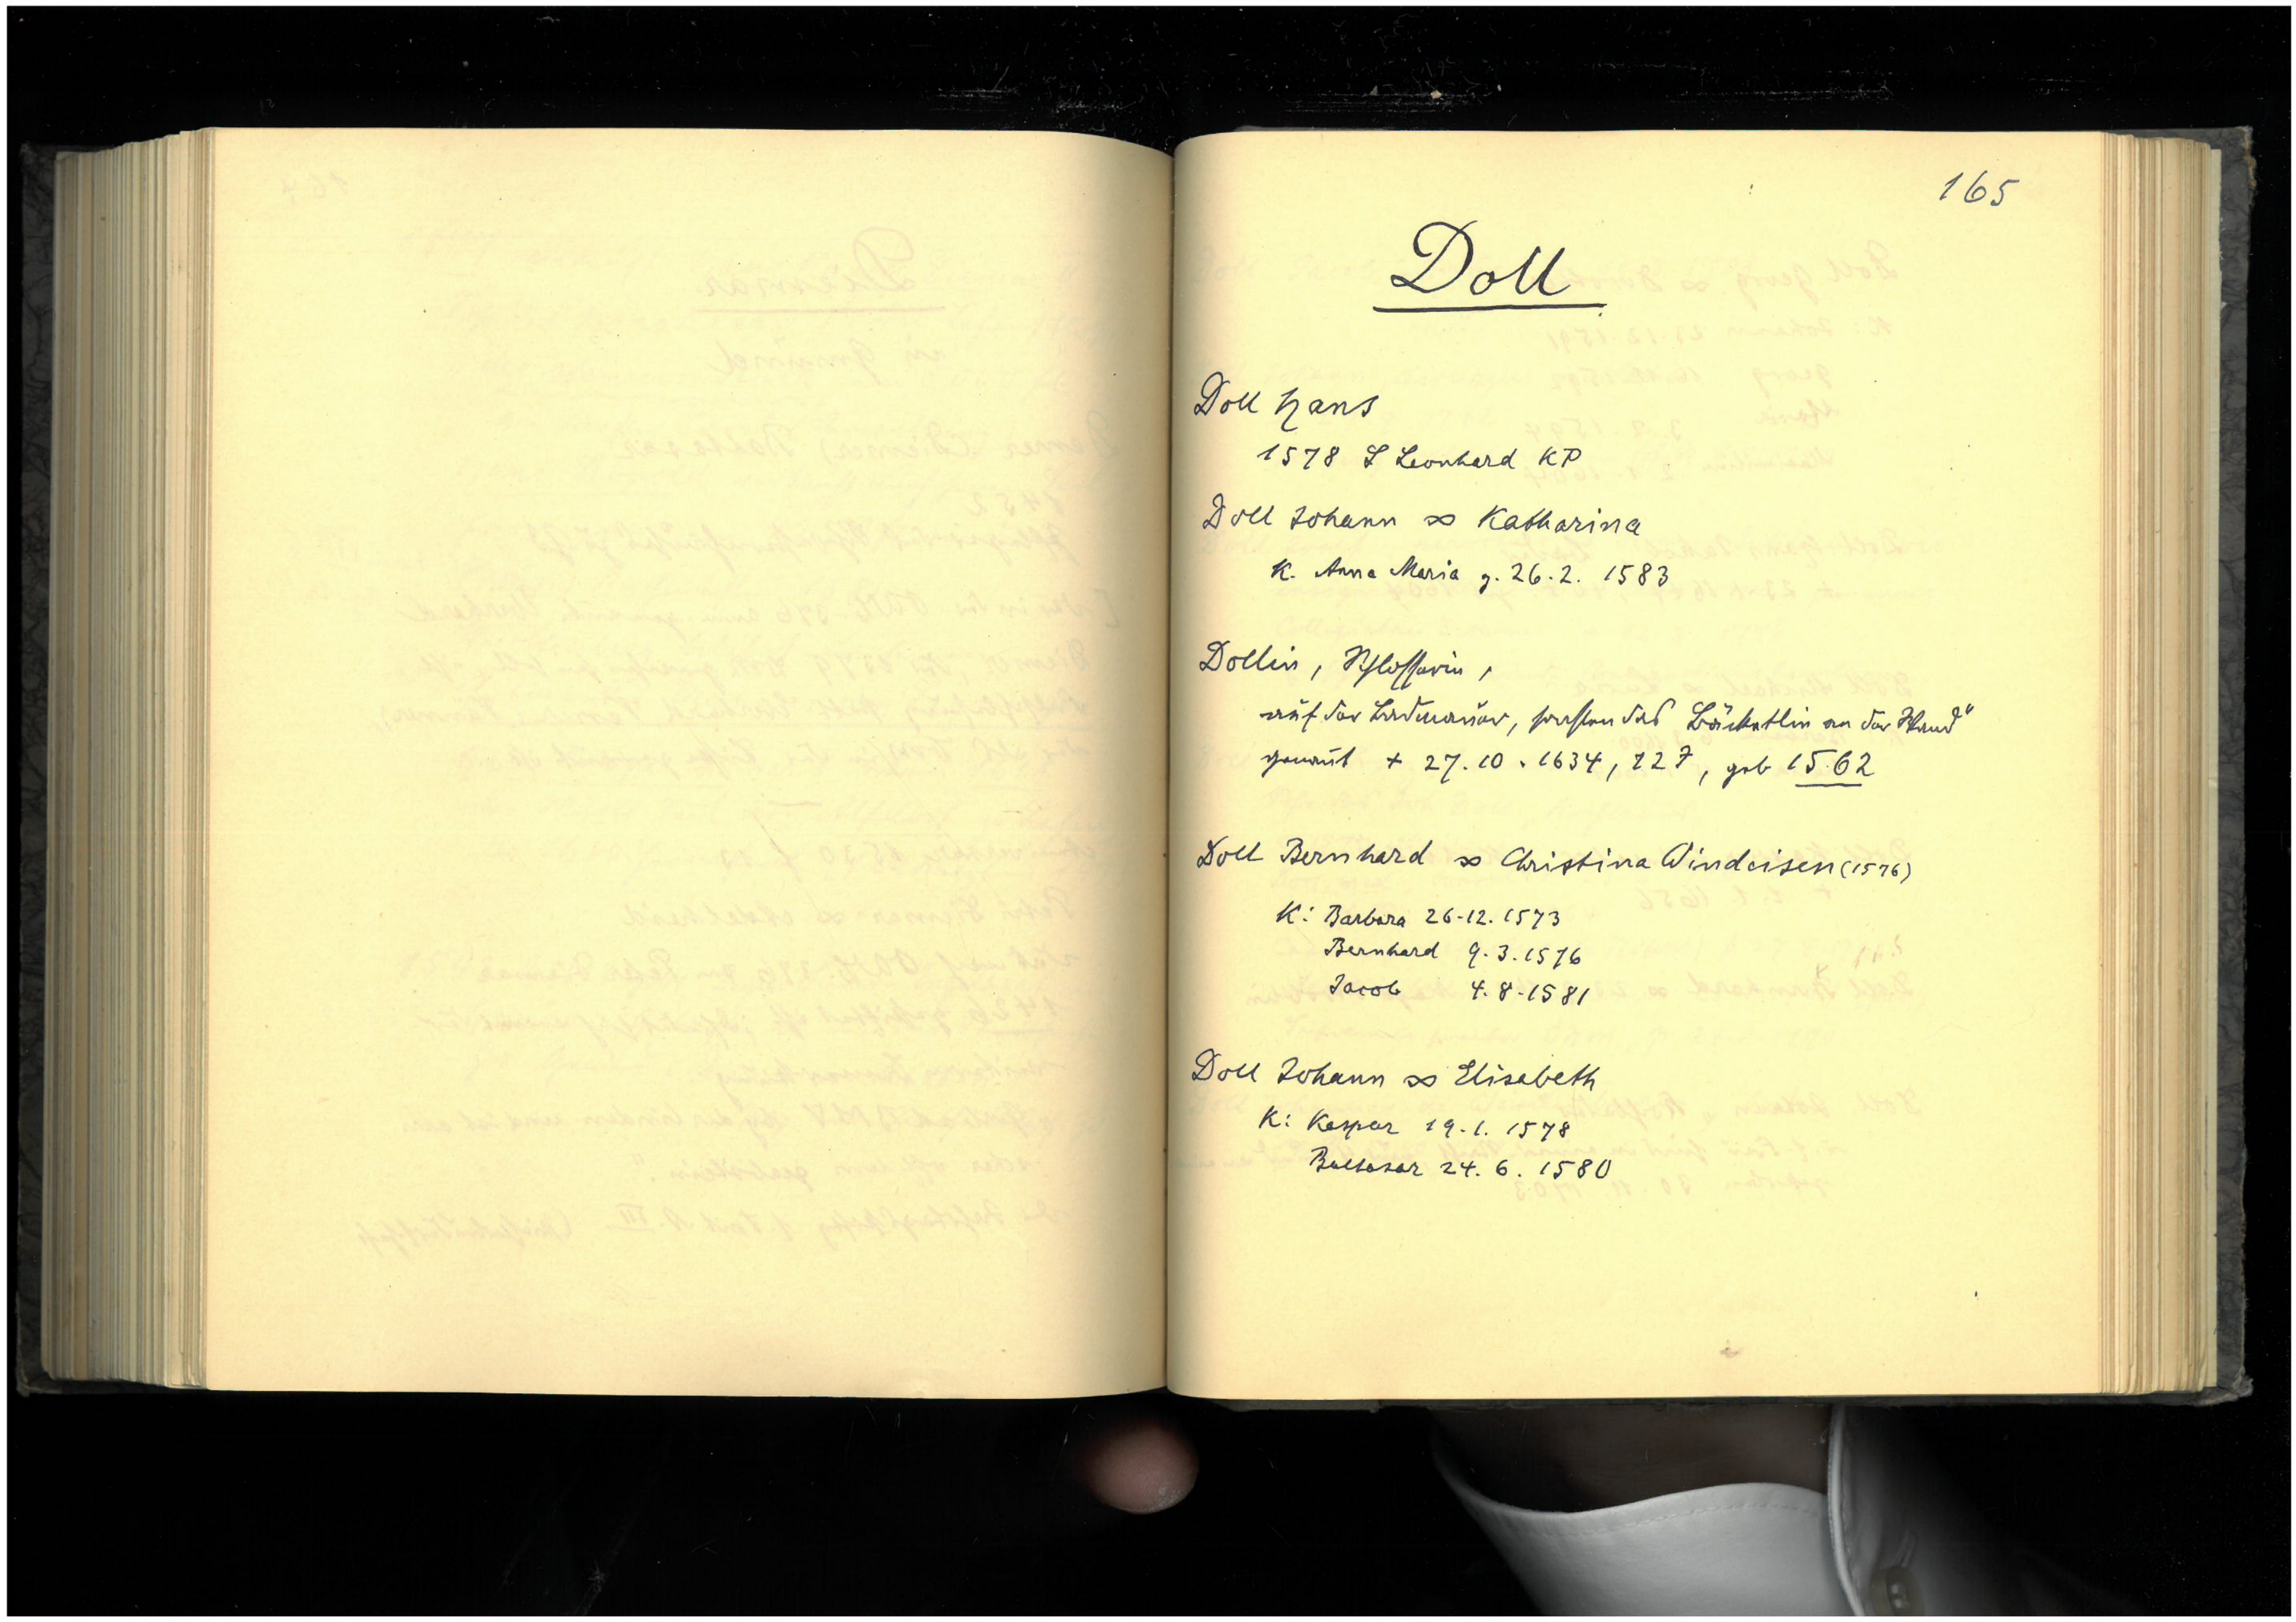 165
Doll
Doll Hans
1578 S Leonhard KP
Doll Johann ∞ Katharina
K. Anna Maria g. 26.2. 1583
Dollin, Schlosserin,
auf der das Bäckertlin an der Wand"
genannt + 27.10.1634, 72 J, geb 1562
Doll Bernhard ∞ Christina Windeisen (1576)
K: Barbara 26.12.1573
Bernhard 9.3.1576
Jacob 4.8.1581
Doll Johann ∞ Elisabeth
K: Kaspar 19.1. 1578
Baltasar 24.6. 1580